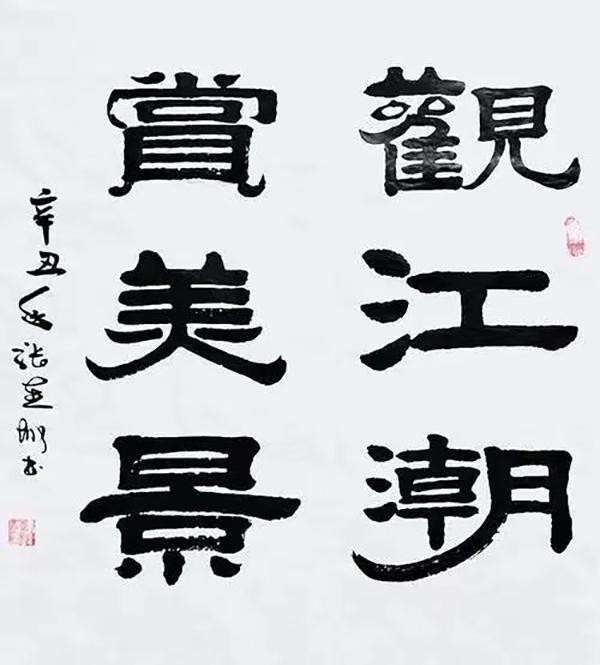 觀江潮
賞美景
辛丑
張 書